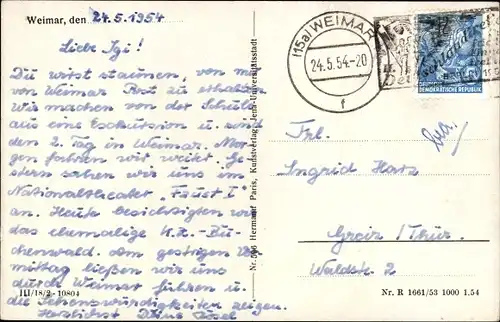 Weimar, den 24.5.1954
Liebe Igi!
Du wirst staunen, von mir
von Weimar Post zu erhalten
Wir machen von der Schule
aus eine Exkursion u. sind
den 2. Tag in Weimar. Mor-
gen fahren wir weiter. Ge-
stern sahen wir uns im
Nationaltheater "Faust I"
an. Heute besichtigten wir
das ehemalige K.Z.-Bu-
chenwald. Am gestrigen Vor-
mittag ließen wir uns
durch Weimar führen u.
die Sehenswürdigkeiten zeigen.
Herzlichst Deine
III/18/2 - 10804
Hermann Paris, Kunstverlag, Jena-Universitätsstadt
(15a) WEIMAR
24.5.54.-20
f
DEUTSCHE
DEMOKRATISCHE REPUBLIK
Frl.
Ingrid
Greiz / Thür.
Waldstr. 2
Nr. R 1661/53 1000 1.54